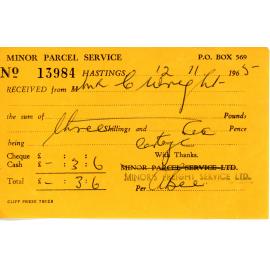 MINOR PARCEL SERVICE P.O. BOX 569
No 13984 HASTINGS, 12 11 1965
RECEIVED from M C Wright
the sum of Pounds
three Shillings and Pence
being Cartage
With Thanks.
Cheque £ :
Cash £ - : 3 : 6
MINOR PARCEL SERVICE LTD.
MINORS FREIGHT SERVICE LTD.
Total £ - : 3 : 6
Per
CLIFF PRESS